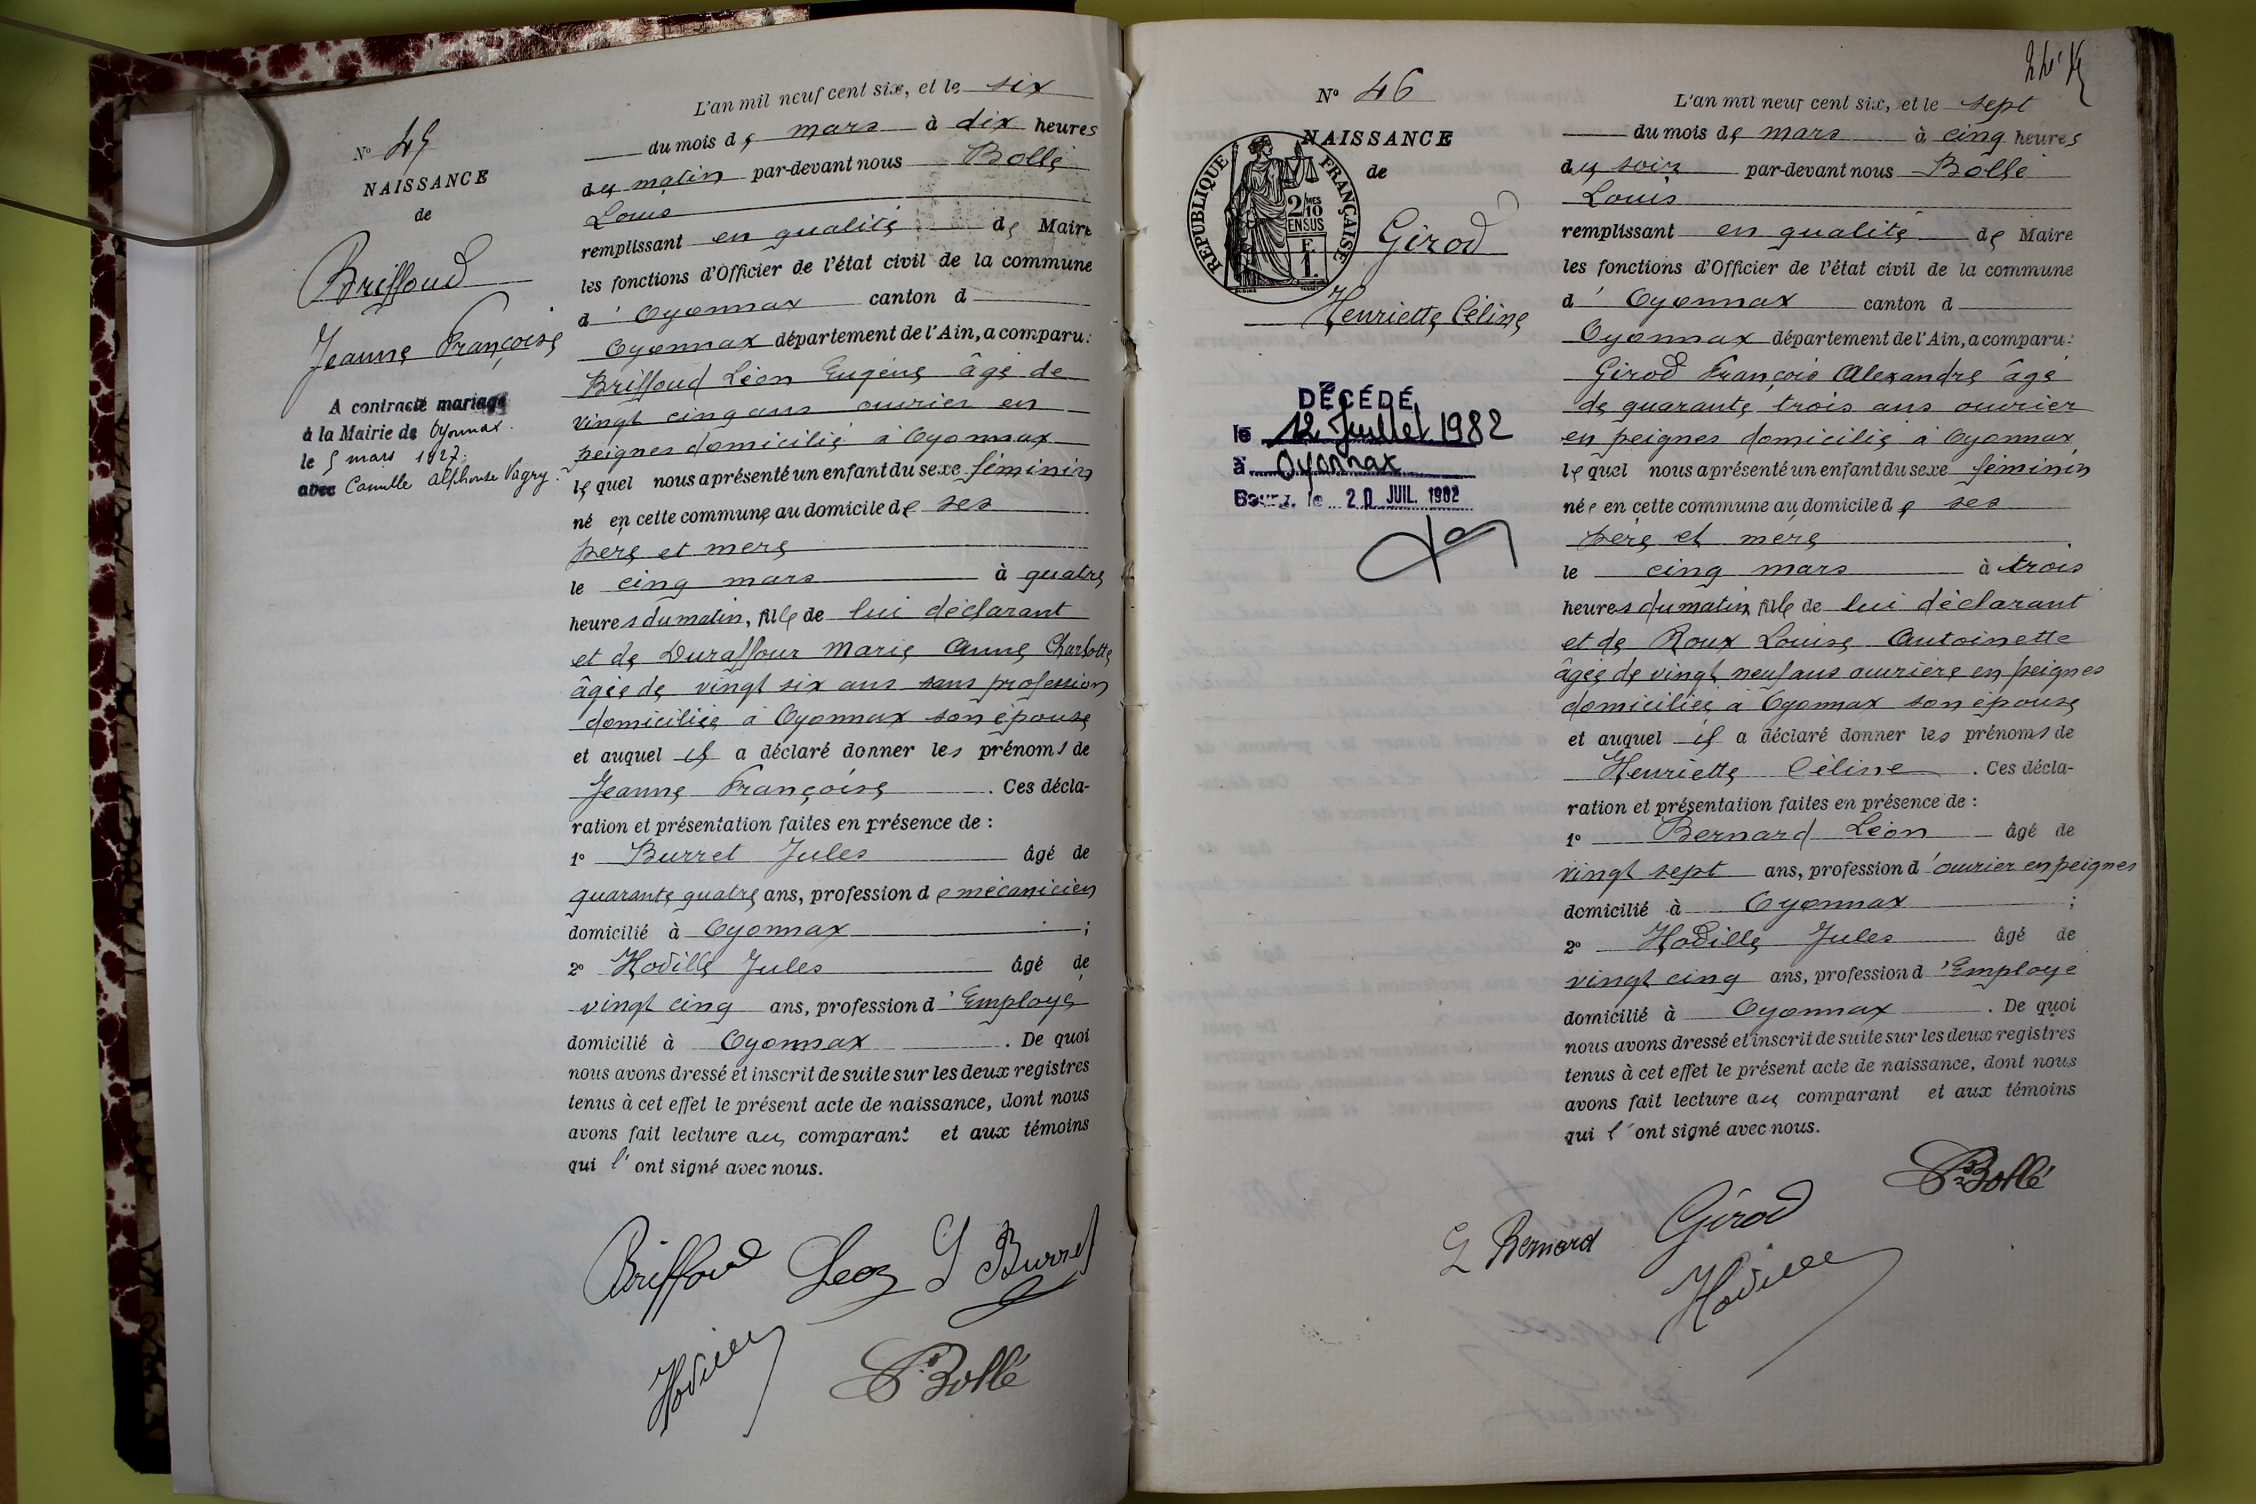 N° 45
NAISSANCE
de
Briffoud
Jeanne Françoise
A contracté mariage
à la Mairie de Oyonnax.
le 5 mars 1927.
avec Camille Alphonse Vagry.
L'an mil neuf cent six, et le six
du mois de mars à dix heures
du matin par-devant nous Bollé
Louis
remplissant en qualité de Maire
les fonctions d'Officier de l'état civil de la commune
d' Oyonnax canton d
Oyonnax département de l'Ain, a comparu:
Briffoud Léon Eugène âgé de
vingt cinq ans ouvrier en
peignes domicilié à Oyonnax
lequel nous a présenté un enfant du sexe féminin
né en cette commune au domicile de ses
père et mère
le cinq mars à quatre
heures du matin, fille de lui déclarant
et de Duraffour Marie Anne Charlotte
âgée de vingt six ans sans profession
domiciliée à Oyonnax son épouse
et auquel il a déclaré donner les prénoms de
Jeanne Françoise . Ces décla-
ration et présentation faites en présence de :
1° Burret Jules âgé de
quarante quatre ans, profession de mécanicien
domicilié à Oyonnax ;
2° Hodille Jules âgé de
vingt cinq ans, profession d'Employé
domicilié à Oyonnax . De quoi
nous avons dressé et inscrit de suite sur les deux registres
tenus à cet effet le présent acte de naissance, dont nous
avons fait lecture au comparant et aux témoins
qui l'ont signé avec nous.
Briffoud Leon J Burret
Hodille
L. Bollé
N° 46
NAISSANCE
de
RÉPUBLIQUE FRANÇAISE
2/10 MES
EN SUS
Girod
Henriette Céline
DÉCÉDÉ
le 12 Juillet 1982
à Oyonnax
Bourg, le 20 JUIL. 1982
L'an mil neuf cent six, et le sept
du mois de mars à cinq heures
du soir par-devant nous Bollé
Louis
remplissant en qualité de Maire
les fonctions d'Officier de l'état civil de la commune
d' Oyonnax canton d
Oyonnax département de l'Ain, a comparu:
Girod François Alexandre âgé
de quarante trois ans ouvrier
en peignes domicilié à Oyonnax
lequel nous a présenté un enfant du sexe féminin
née en cette commune au domicile de ses
père et mère
le cinq mars à trois
heures du matin fille de lui déclarant
et de Roux Louise Antoinette
âgée de vingt neuf ans ouvrière en peignes
domiciliée à Oyonnax son épouse
et auquel il a déclaré donner les prénoms de
Henriette Céline . Ces décla-
ration et présentation faites en présence de :
1° Bernard Léon âgé de
vingt sept ans, profession d'ouvrier en peignes
domicilié à Oyonnax ;
2° Hodille Jules âgé de
vingt cinq ans, profession d'Employé
domicilié à Oyonnax . De quoi
nous avons dressé et inscrit de suite sur les deux registres
tenus à cet effet le présent acte de naissance, dont nous
avons fait lecture au comparant et aux témoins
qui l'ont signé avec nous.
L. Bollé
L Bernard Girod
Hodille